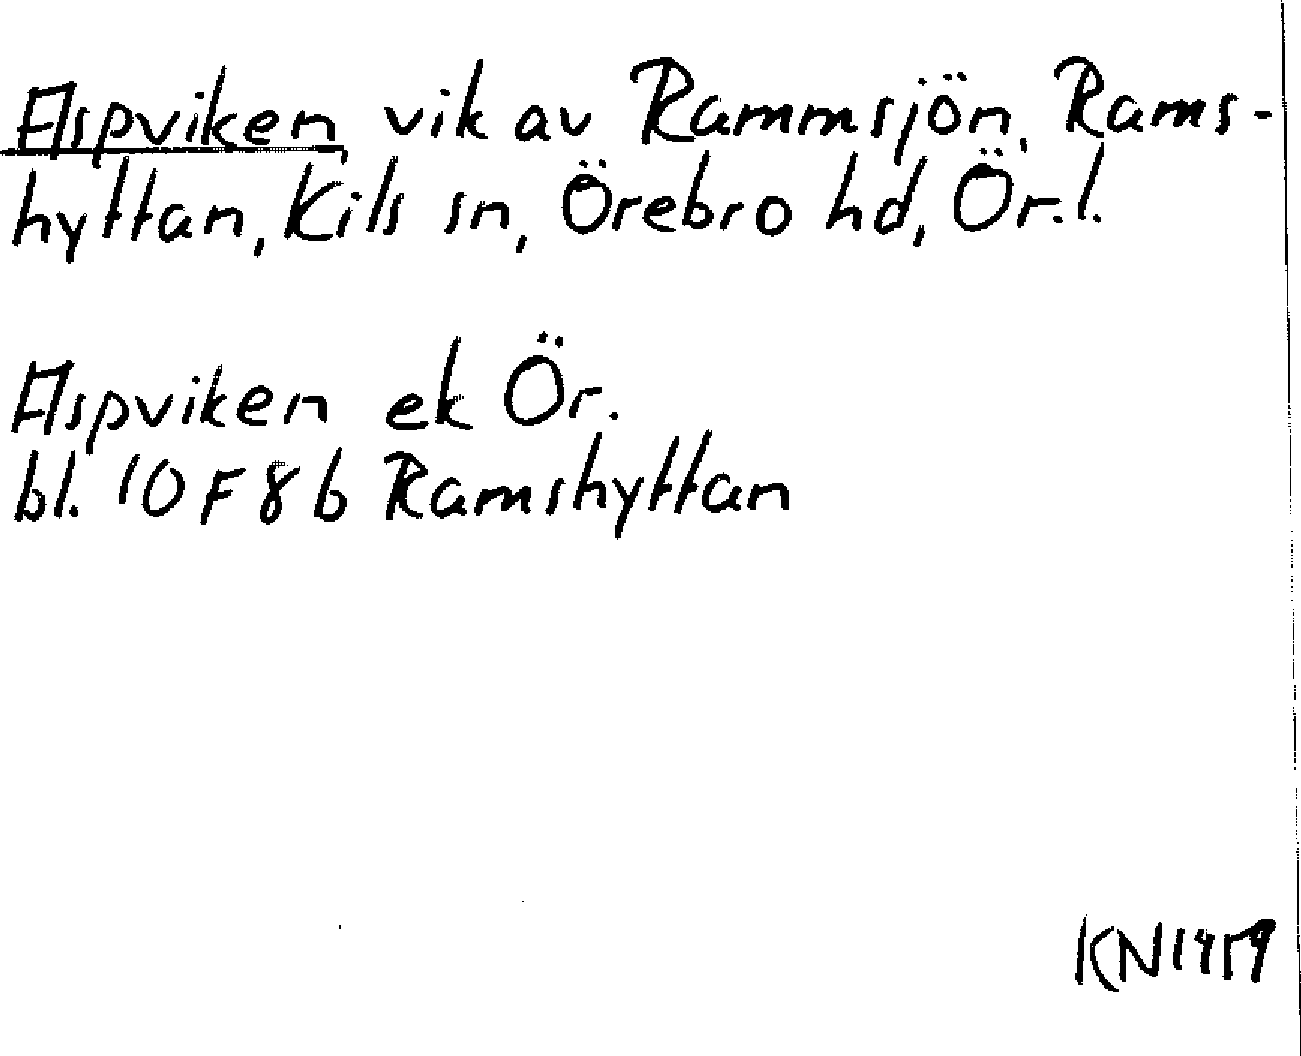 Aspviken, vik av Rammsjön, Rams-
hyttan, Kils sn, Örebro hd, Ör.l.
Aspviken ek Ör.
bl. 10F8b Ramshyttan